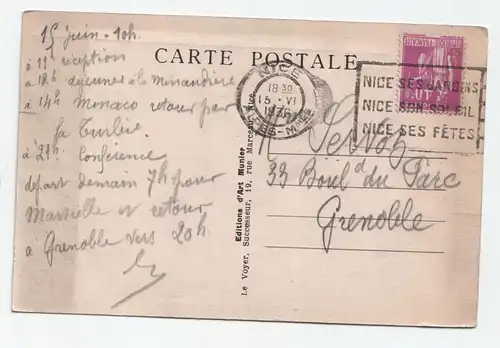 15 juin - 10h.
à 11h réception
à 12h déjeuner à la
à 14h Monaco retour par
la Turbie
à 21h Conférence
départ demain 7h pour
Marseille et retour
à Grenoble vers 20h.
CARTE POSTALE
NICE
18 30
15 - VI
ALPES-MMES
NICE SES JARDINS
NICE SON SOLEIL
NICE SES FÊTES
Servoz
33 Boul d du Parc
Grenoble
Editions d'Art Munier
Le Voyer, Successeur, 19, rue Nice